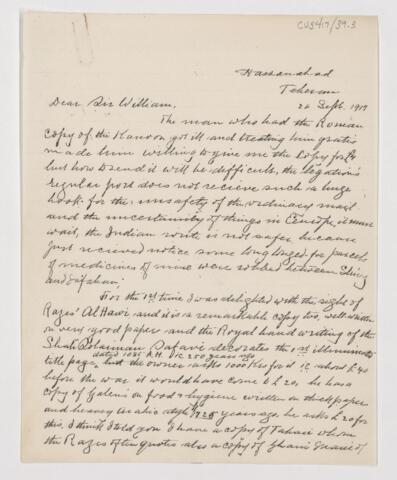 CUS417/39.3
Hassanabad
Teheran
26 Sept. 1917
Dear Sir William,
The man who had the Roman
copy of the Kanoon got ill and treating him gratis
made him willing to give me the copy for
but how to send it will be difficult, the legation's
regular post does not recieve such a huge
book for the unsafety of the ordinary mail
and the uncertainity of things in Europe, it must
wait, the Indian route is not safer because
just recieved notice some long longed for parcels
of medicines of mine were robbed between Shiraz
and Isfahan.
For the 1st time I was delighted with the sight of
Razes' Al Hawi and it is a remarkable copy too, well written
on very good paper and the Royal hand writing of the
Shah Solaiman Safavi decorates the 1st illuminated
title page, dated 1085 A.H. i.e. 200 years ago
but the owner asks 1000 for it i.e. about £ 40
before the war it would have come to £ 20, he has a
copy of Galen's on food & hygiene written on thick paper
and heavy Arabic style 725 years ago, he asks £ 20 for
this, I think I told you I have a copy of Tabari whom
the Razes often quotes also a copy of Ghani